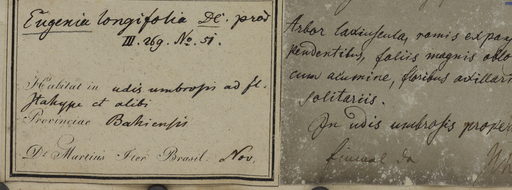 Eugenia longifolia DC. prod
III. 269. No. 51.
Habitat in udis umbrosis ad fl.
Itahype et alibi
Provinciae Bahiensis
Dr. Martius Iter Brasil. Nov.
Arbor laxiuscula, ramis expan
pendentibus, foliis magnis oblo
cum acumine, floribus axillari
solitariis.
In udis umbrosis prope